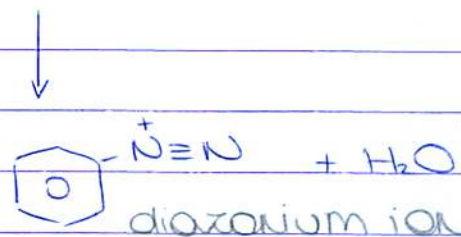 N⁺≡N + H₂O
diazonium ion